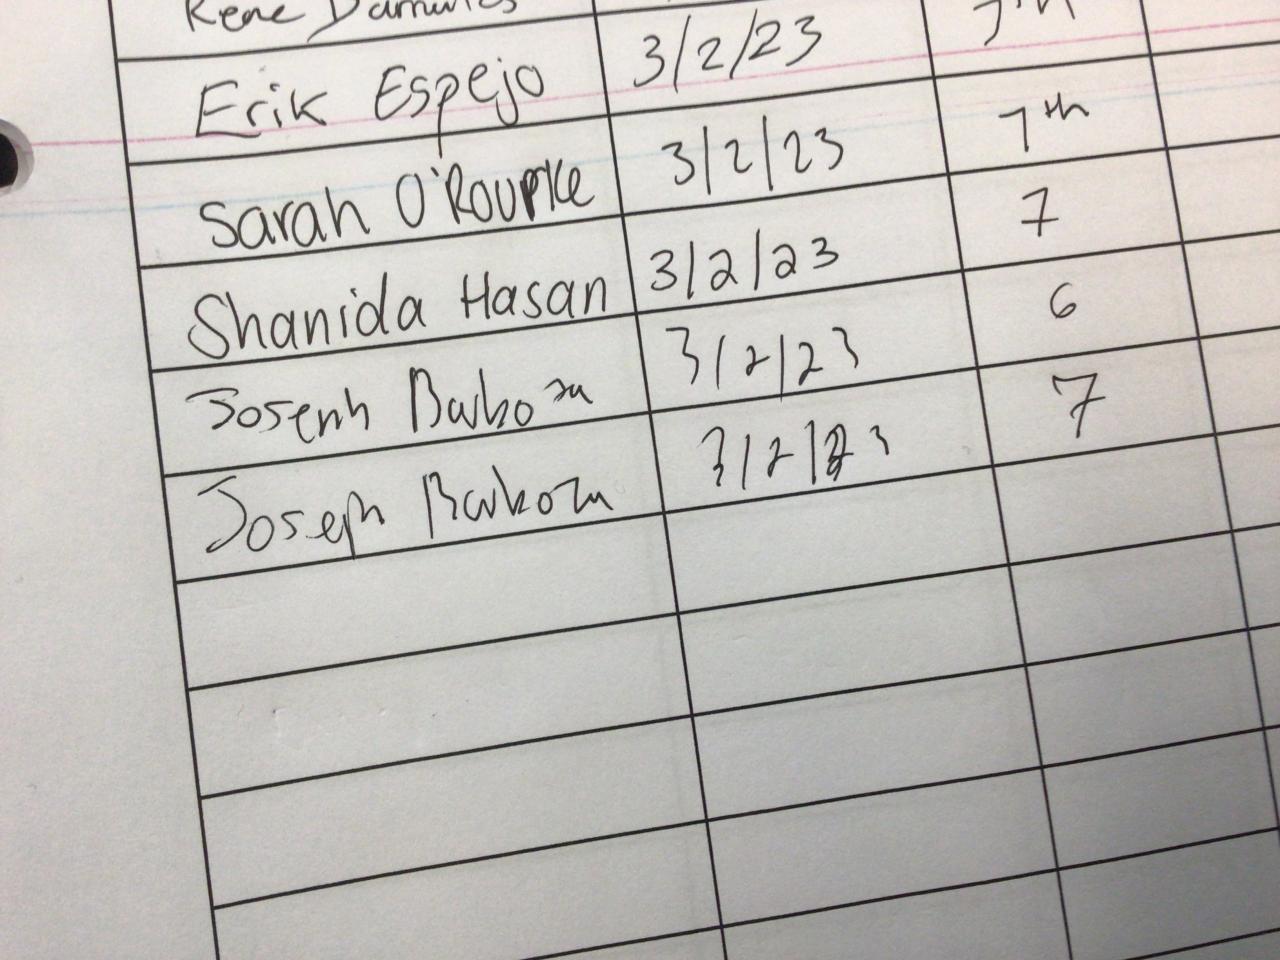 Rene
Erik Espejo 3/2/23 7th
Sarah O'Rourke 3/2/23 7th
Shanida Hasan 3/2/23 7
Joseph Barboza 3/2/23 6
Joseph Barboza 3/2/23 7